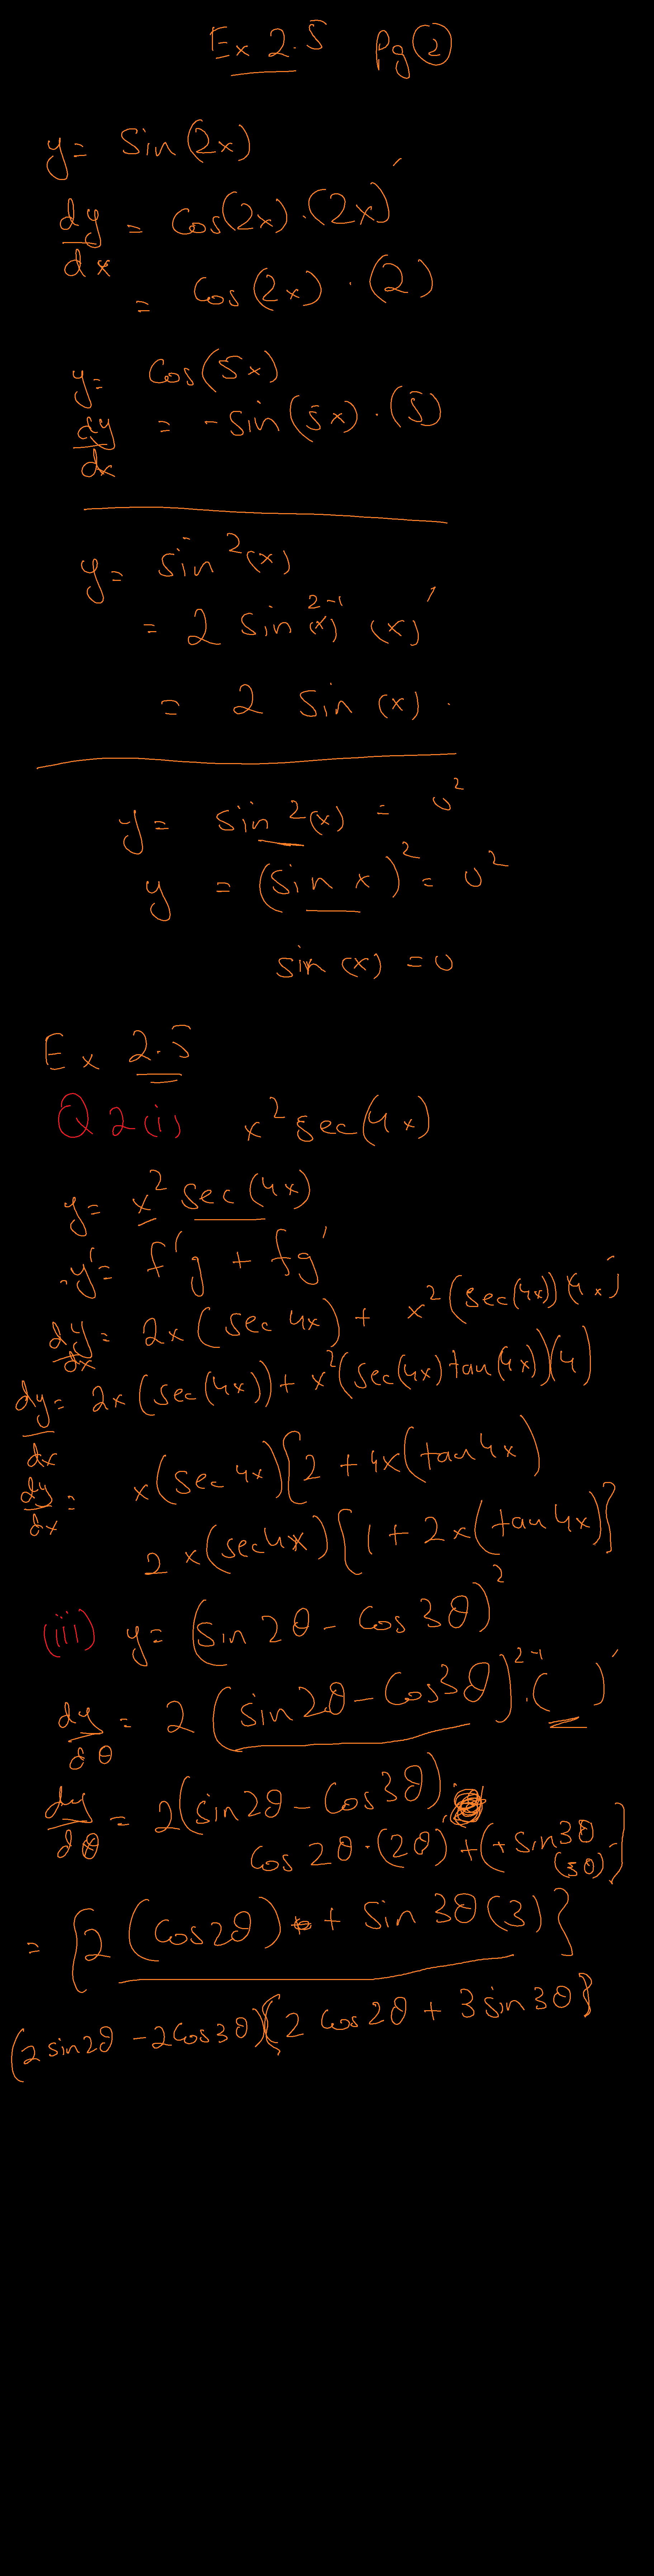 Ex 2.5 Pg ②
y = Sin(2x)
dy/dx = Cos(2x).(2x)'
= Cos(2x) . (2)
y = Cos(5x)
dy/dx = -Sin(5x).(5)
y = Sin²(x)
= 2 Sin²⁻¹(x) (x)'
= 2 Sin(x) .
y = Sin²(x) = u²
y = (Sin x)² = u²
Sin(x) = u
Ex 2.5
Q 2(i) x² Sec(4x)
y = x² Sec(4x)
y' = f'g + fg'
dy/dx = 2x(Sec 4x) + x²(Sec(4x))(4x)'
dy/dx = 2x(Sec(4x)) + x²(Sec(4x)tan(4x))(4)
dy/dx = x(Sec 4x)[2 + 4x(tan 4x)
2x(Sec4x)[1 + 2x(tan 4x)]
(iii) y = (Sin 2θ - Cos 3θ)²
dy/dθ = 2(Sin2θ - Cos3θ)²⁻¹.( )'
dy/dθ = 2(Sin2θ - Cos3θ).
Cos 2θ.(2θ)' + (+Sin3θ (3θ)'}
= {2(Cos2θ) + Sin 3θ(3)}
(2Sin2θ - 2Cos3θ){2 Cos2θ + 3Sin3θ}